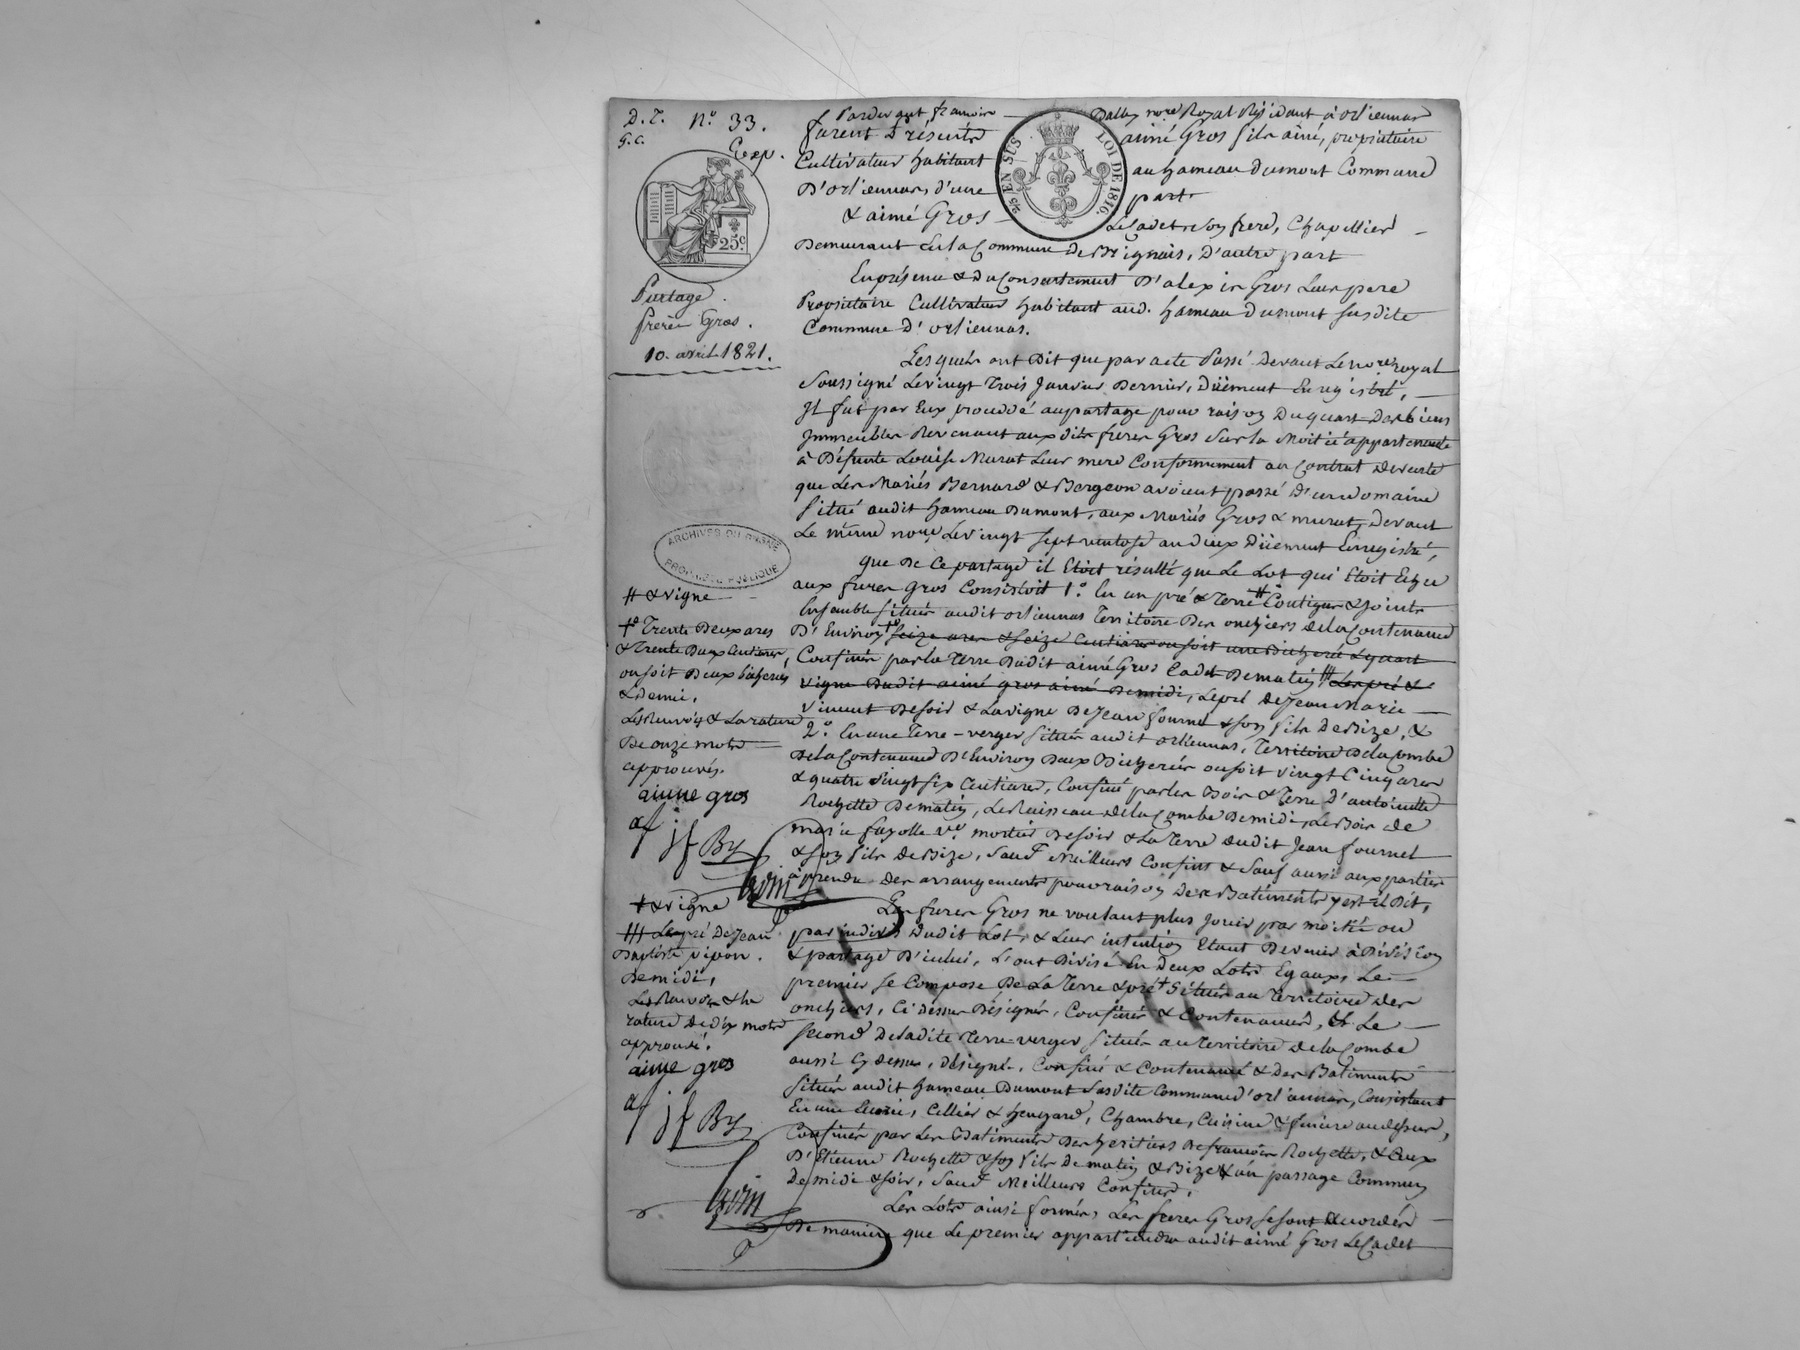 D. T. N.° 33.
G. C.
Exp.
25c
5/2 EN SUS LOI DE 1816.
Partage
frères Gros.
10. avril 1821.
Pardevant françois Dalby nore Royal Résidant à orliennas
furent Présents aimé Gros fils aîné, propriétaire
Cultivateur habitant au hameau Dumont Commune
D'orliennas, d'une part
& aimé Gros Le Cadet son frere, Chapellier
Demeurant en la Commune De Brignais, D'autre part
En présence & du Consentement D'alexis Gros Leur pere
Propriétaire Cultivateur habitant aud. hameau Dumont susdite
Commune D'orliennas.
Lesquels ont Dit que par acte Passé Devant Le nore royal
Soussigné Le vingt Trois Janvier Dernier, Düement Enregistré,
Il fut par Eux procédé au partage pour raison Du quart Des biens
Immeubles Revenant aux dits freres Gros Sur la Moitié appartenante
à Défunte Louise Murat Leur mere Conformement au Contrat de vente
que Les Mariés Bernard & Bergeon avoient passé D'un Domaine
Situé audit hameau Dumont, aux Mariés Gros & murat, Devant
Le même nore Le vingt sept ventose an deux Düement Enregistré,
que De Ce partage il Etoit résulté que Le Lot qui Etoit Echu
aux freres Gros Consistoit 1.° En un pré & Terre # Contigus & joints
Ensemble situés audit orliennas Territoire Des onchiers de la Contenance
D'Environ +° seize ares & seize Centiares ou soit une Bicherée & quart
Confinés par la Terre Dudit aimé Gros Cadet De matin, ## Les pré &
vigne Dudit aimé gros ainé De midi, Le pré De Jean Marie
vincent De soir & La vigne De Jean fournel & son fils De Bize, &
2.° En une Terre-verger située audit orliennas, Territoire De la Combe
De la Contenance D'Environ Deux Bicherées ou soit vingt Cinq ares
& quatre vingt six Centiares, Confiné par les Bois & Terre D'antoinette
Rochette De matin, Le Ruisseau de la Combe De midi, Le Bois de
marie fayolle ve. mortier De soir & La Terre dudit Jean fournel
& son fils De Bize, Sauf Meilleurs Confins & Sauf aussi aux parties
à prendre des arrangements pour raison Des Batiments y est-il Dit,
Les freres Gros ne voulant plus Jouir par moitié ou
par indivis Dudit Lot, & Leur intention Etant De venir à Division
& partage D'icelui, L'ont Divisé En Deux Lots Egaux, Le
premier se Compose De La Terre & pré + Situés au Territoire des
onchiers, Ci dessus Désignés, Confinés & Contenances, & Le
second De ladite Terre-verger située au Territoire de la Combe
aussi Cy dessus, désigné, Confiné & Contenance & Des Batiments
situés audit hameau Dumont Susdite Commune d'orliennas, Consistant
En une Ecurie, Cellier & hangard, Chambre, Cuisine & feniere au dessus,
Confinés par Les Batiments Des heritiers De françois Rochette, & Ceux
D'Etienne Rochette & son fils De matin & Bize & un passage Commun
De midi & soir, Sauf Meilleurs Confins.
Les Lots ainsi formés, Les freres Gros se sont accordés
De maniere que Le premier appartiendra audit aimé Gros Le Cadet
ARCHIVES DU RHONE
PROPRIÉTÉ PUBLIQUE
# & vigne
+° Trente Deux ares
& Trente Deux Centiares,
ou soit Deux bicherées
& Demie.
Les Renvois & La rature
De onze mots
approuvés.
aimé gros
af jf By
+ & vigne
## Le pré De Jean
Baptiste
De midi,
Les Renvois & la
rature De dix mots
approuvé.
aimé gros
af jf By